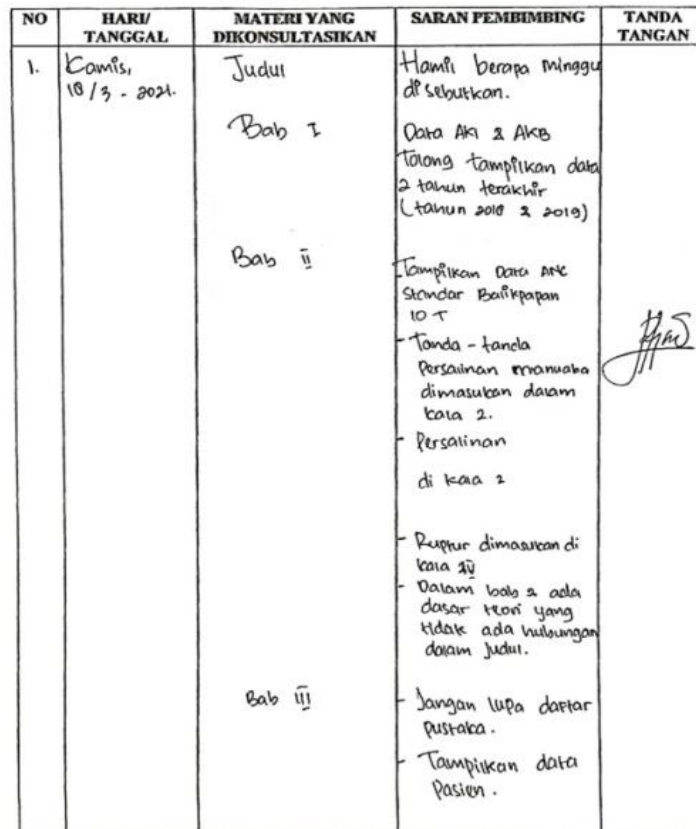 NO
HARI/
TANGGAL
MATERI YANG
DIKONSULTASIKAN
SARAN PEMBIMBING
TANDA
TANGAN
1.
Kamis,
18/3 - 2021.
Judul
Hamil berapa minggu
disebutkan.
Bab I
Data AKI & AKB
Tolong tampilkan data
2 tahun terakhir
(tahun 2018 & 2019)
Bab II
- Tampilkan Data ANC
Standar Balikpapan
10 T
- Tanda-tanda
Persalinan manuaba
dimasukan dalam
kala 2.
- Persalinan
di kala 2
- Ruptur dimasukan di
kala IV
- Dalam bab 2 ada
dasar teori yang
tidak ada hubungan
dalam judul.
Bab III
- Jangan lupa daftar
pustaka.
- Tampilkan data
Pasien.